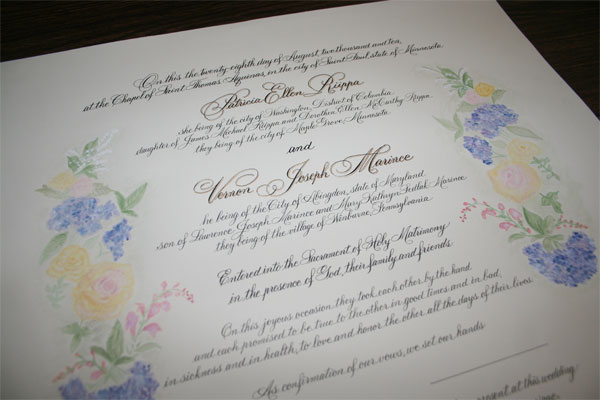 On this the twenty-eighth day of August, two thousand and ten,
at the Chapel of Saint Thomas Aquinas, in the city of Saint Paul, state of Minnesota.
Patricia Ellen Ruppa
she being of the city of Washington, District of Columbia
daughter of James Michael Ruppa and Dorothea Ellen McCarthy Ruppa
they being of the city of Maple Grove, Minnesota.
and
Vernon Joseph Marince
he being of the City of Abingdon, state of Maryland
son of Lawrence Joseph Marince and Mary Kathryn Sedlak Marince
they being of the village of Pennsylvania
Entered into the Sacrament of Holy Matrimony
in the presence of God, their family and friends
On this joyous occasion they took each other by the hand
and each promised to be true to the other in good times and in bad,
in sickness and in health, to love and honor the other all the days of their lives.
As confirmation of our vows, we set our hands
present at this wedding